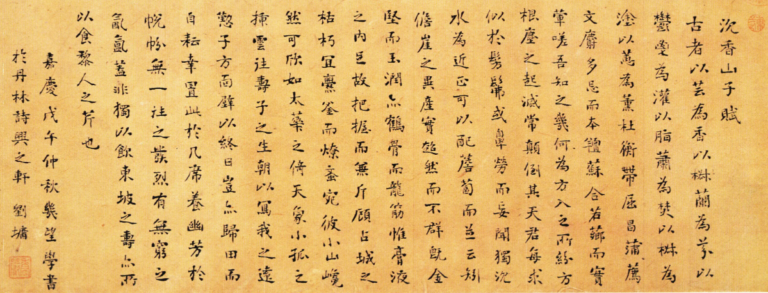 沉香山子賦
古者以芸為香以椒蘭為芬以
鬱鬯為灌以脂蕭為焚以椒為
塗以蕙為薰杜衡帶屈昌蒲薦
文麝多忌而本羶蘇合若薌而實
葷嗟吾知之幾何為六入之所紛方
根塵之起滅常顛倒其天君每求
似於髣髴或鼻勞而妄聞獨沉
水為近正可以配薝蔔而並云矧
儋崖之異產實超然而不群既金
堅而玉潤亦鶴骨而龍筋惟膏液
之內足故把握而兼斤顧占城之
枯朽宜爨釜而燎蚉宛彼小山巉
然可欣如太華之倚天象小孤之
插雲往壽子之生朝以寫我之遠
懃子方面壁以終日豈亦歸田而
自耘幸置此於几席養幽芳於
帨帉無一往之發烈有無窮之
氤氳蓋非獨以飲東坡之壽亦所
以食黎人之芹也
嘉慶戊午仲秋幾望學書
於丹林詩興之軒 劉墉